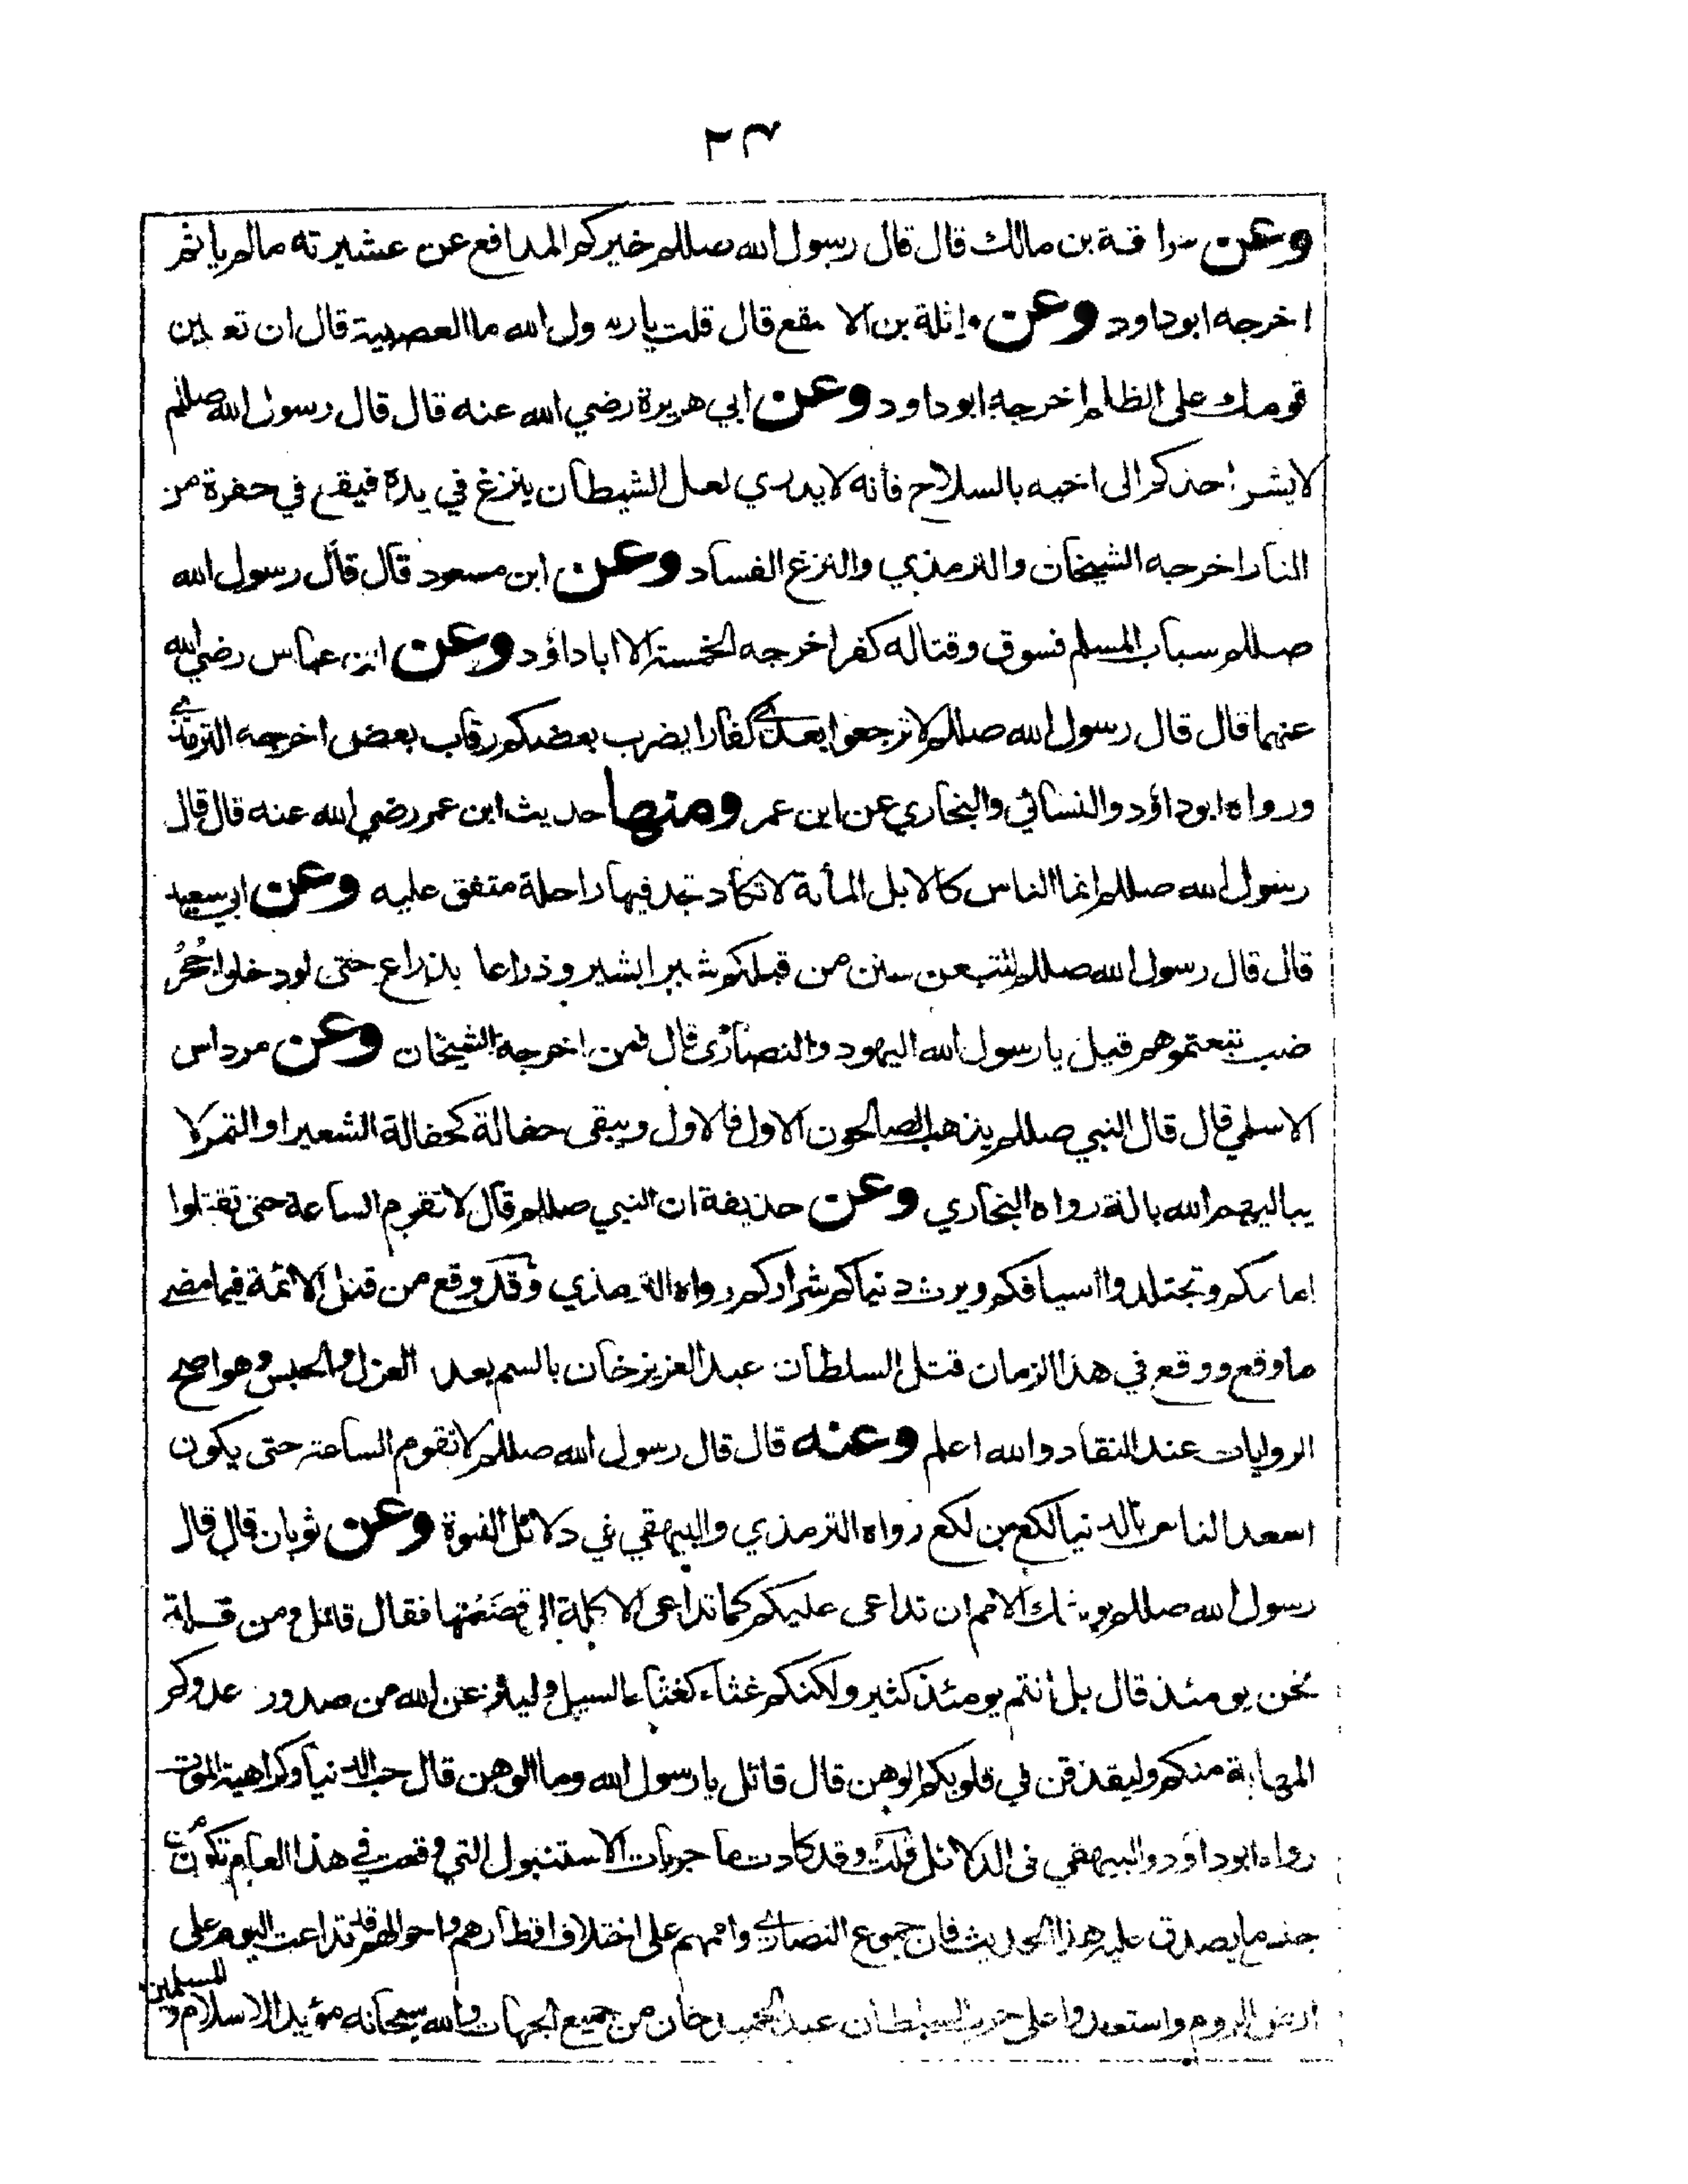 ٢٣
وعن سراقة بن مالك قال قال رسول الله صللم خيركم المدافع عن عشيرته مالم ياثم
اخرجه ابوداود وعن واثلة بن الاسقع قال قلت يا رسول الله ما العصبية قال ان تعين
قومك على الظلم اخرجه ابوداود وعن ابي هريرة رضي الله عنه قال قال رسول الله صللم
لا يشر احدكم الى اخيه بالسلاح فانه لا يدري لعل الشيطان ينزغ في يده فيقع في حفرة من
النار اخرجه الشيخان والترمذي والنزغ الفساد وعن ابن مسعود قال قال رسول الله
صللم سباب المسلم فسوق وقتاله كفر اخرجه الخمسة الا ابا داؤد وعن ابن عباس رضي الله
عنهما قال قال رسول الله صللم لا ترجعوا بعدي كفارا يضرب بعضكم رقاب بعض اخرجه الترمذي
ورواه ابوداؤد والنسائي والبخاري عن ابن عمر ومنها حديث ابن عمر رضي الله عنه قال قال
رسول الله صللم انما الناس كالابل المأئة لا تكاد تجد فيها راحلة متفق عليه وعن ابي سعيد
قال قال رسول الله صللم لتتبعن سنن من قبلكم شبرا بشبر وذراعا بذراع حتى لو دخلوا جُحْرُ
ضب تبعتموهم قيل يا رسول الله اليهود والنصارى قال فمن اخرجه الشيخان وعن مرداس
الاسلمي قال قال النبي صللم يذهب الصالحون الاول فالاول ويبقى حفالة كحفالة الشعير او التمر لا
يباليهم الله بالة رواه البخاري وعن حذيفة ان النبي صللم قال لا تقوم الساعة حتى تقتلوا
امامكم وتجتلدوا اسيافكم ويرث دنياكم شراركم رواه الترمذي وقد وقع من قتل الائمة فيما مضى
ما وقع ووقع في هذا الزمان قتل السلطان عبد العزيز خان بالسم بعد العزل والحبس وهو اصح
الروايات عند النقاد والله اعلم وعنه قال قال رسول الله صللم لا تقوم الساعة حتى يكون
اسعد الناس بالدنيا لكع بن لكع رواه الترمذي والبيهقي في دلائل النبوة وعن ثوبان قال قال
رسول الله صللم يوشك الامم ان تداعى عليكم كما تداعى الاكلة الى قصعتها فقال قائل ومن قلة
نحن يومئذ قال بل انتم يومئذ كثير ولكنكم غثاء كغثاء السيل ولينزعن الله من صدور عدوكم
المهابة منكم وليقذفن في قلوبكم الوهن قال قائل يا رسول الله وما الوهن قال حب الدنيا وكراهية الموت
رواه ابوداؤد والبيهقي في الدلائل قلت وقد كادت ماجريات الاستنبول التي وقعت في هذا العام تكون من
جنس ما يصدق عليه هذا الحديث فان جموع النصارى واممهم على اختلاف اقطارهم واحوالهم قد تداعت اليوم على
ارض الروم واستعدوا على حرب السلطان عبد الحميد خان من جميع الجهات والله سبحانه مؤيد الاسلام و
المسلمين